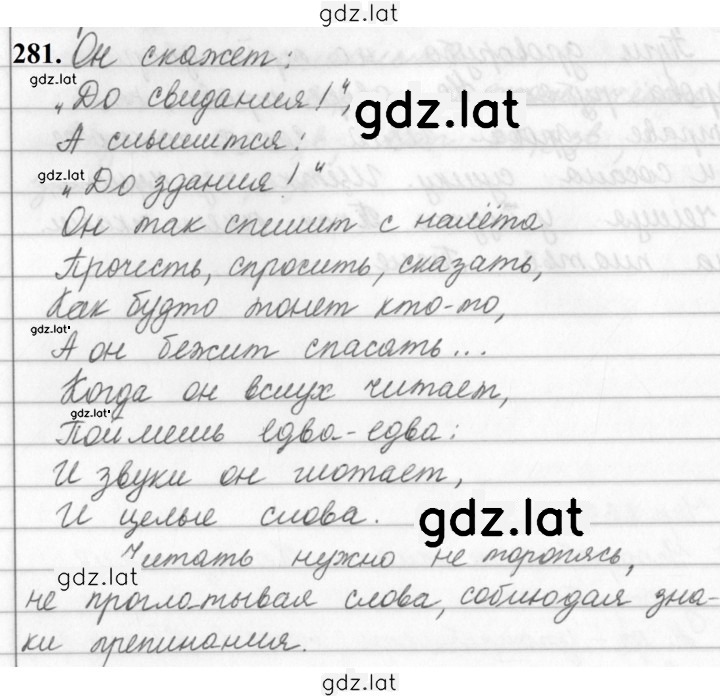 gdz.lat
281. Он скажет:
gdz.lat
„До свидания!“,
gdz.lat
А слышится:
gdz.lat
„До здания!“
Он так спешит с налёта
Прочесть, спросить, сказать,
Как будто тонет кто-то,
gdz.lat
А он бежит спасать...
Когда он вслух читает,
gdz.lat
Поймешь едва-едва:
И звуки он глотает,
И целые слова.
gdz.lat
Читать нужно не торопясь,
gdz.lat
не проглатывая слова, соблюдая зна-
ки препинания.
gdz.lat